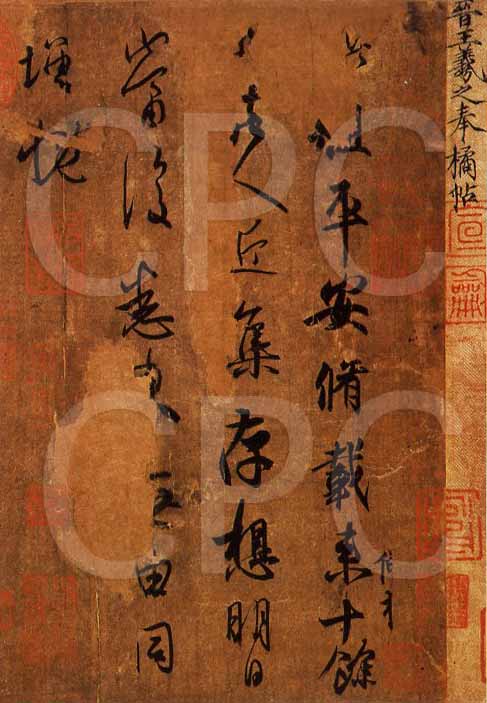 晉王羲之奉橘帖
此粗平安脩載來十餘
日諸人近集存想明日
當復悉來無由同
增慨
CPC
CPC